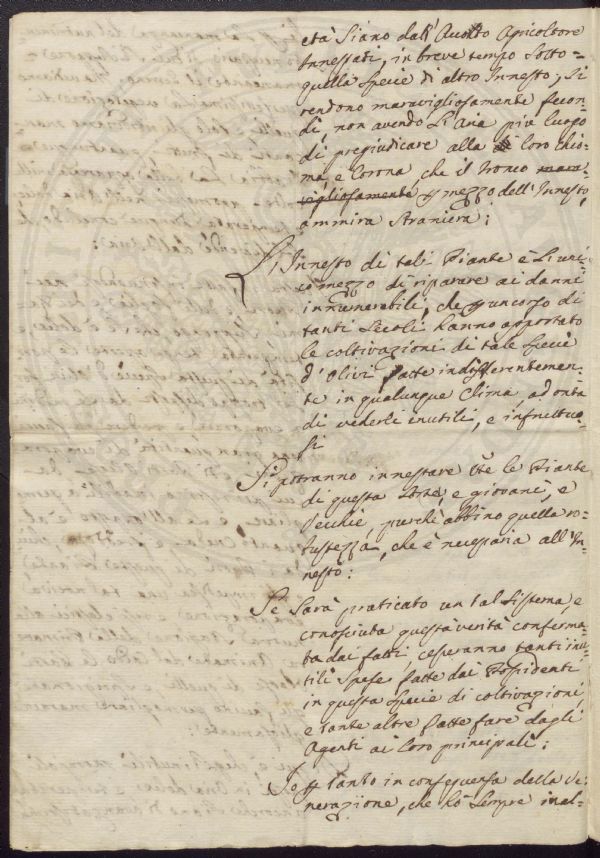 età Siano dall' Avolto Agricoltore
Innestati, in breve tempo Sotto=
quella Specie di altro Innesto, Si
rendono maravigliosamente fecon
di, non avendo L'Aria più luogo
di pregiudicare alla loro chio=
ma e Corona, che il tronco mara=
vigliosamente p mezzo dell'Innesto
ammira Straniera;
L'Innesto di tali Piante è L'uni
co mezzo di riparare ai danni
innumerabili, che p un corso di
tanti Secoli hanno apportato
le coltivazioni di tale Specie
d'Olivi fatte indifferentemen=
te in qualunque Clima, ad onta
di vederli inutili, e infruttuo=
si
Si potranno innestare tte le Piante
di questa, e giovani, e
Vecchie, purchè abbino quella ro=
bustezza, che è necessaria all'In=
nesto:
Se Sarà praticato un tal Sistema, e
conosciuta questa verità conferma=
ta dai fatti, cesseranno tanti inu
tili Spese fatte dai Possidenti
in questa Specie di coltivazioni,
e tante altre fatte fare dagli
Agenti ai loro principali;
Io p tanto in conseguenza della Ve=
nerazione, che hò Sempre inal=